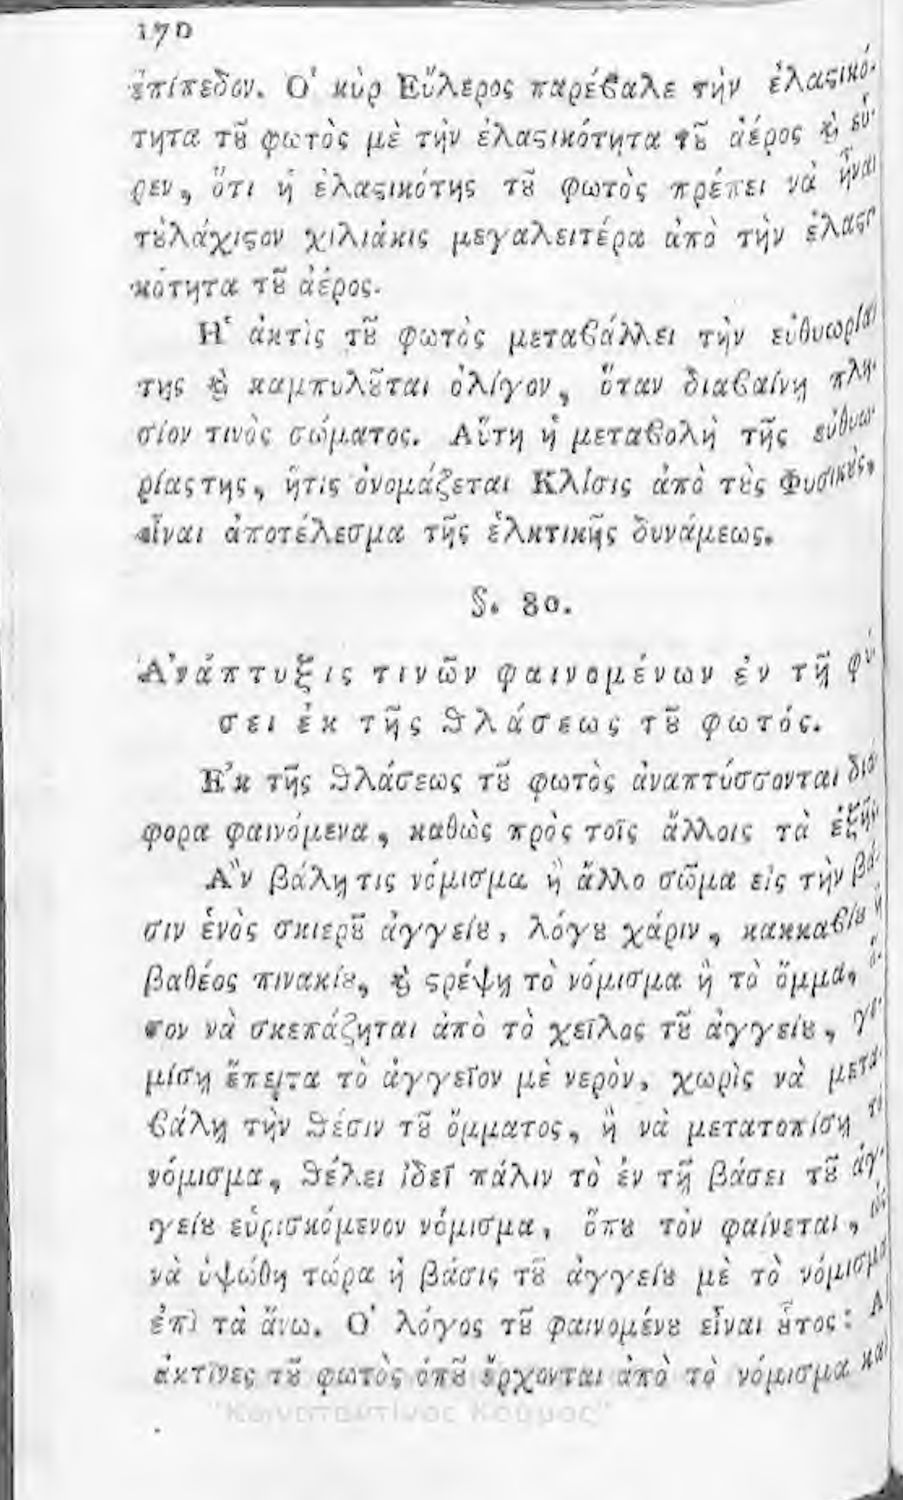 170
ἐπίπεδον. Ὁ κὺρ Εὔλερος παρέβαλε τὴν ἐλαϛικό-
τητα τȣ͂ φωτὸς μὲ τὴν ἐλαϛικότητα τȣ͂ ἀέρος ϗ εὗ-
ρεν, ὅτι ἡ ἐλαϛικότης τȣ͂ φωτὸς πρέπει νὰ ἦναι
τȣλάχιϛον χιλιάκις μεγαλειτέρα ἀπὸ τὴν ἐλαϛι-
κότητα τȣ͂ ἀέρος.
Ἡ ἀκτὶς τȣ͂ φωτὸς μεταβάλλει τὴν εὐθυωρίαν
της ϗ καμπυλȣ͂ται ὀλίγον, ὅταν διαβαίνῃ πλη-
σίον τινὸς σώματος. Αὕτη ἡ μεταβολὴ τῆς εὐθυω-
ρίας της, ἥτις ὀνομάζεται Κλίσις ἀπὸ τȣ̀ς Φυσικȣ́ς,
εἶναι ἀποτέλεσμα τῆς ἑλκτικῆς δυνάμεως.
§. 80.
Ἀνάπτυξις τινῶν φαινομένων ἐν τῇ φύ-
σει ἐκ τῆς ϑλάσεως τȣ͂ φωτός.
Ἐκ τῆς ϑλάσεως τȣ͂ φωτὸς ἀναπτύσσονται διά-
φορα φαινόμενα, καθὼς πρὸς τοῖς ἄλλοις τὰ ἑξῆς·
Ἂν βάλῃ τις νόμισμα ἢ ἄλλο σῶμα εἰς τὴν βά-
σιν ἑνὸς σκιερȣ͂ ἀγγείȣ, λόγȣ χάριν, κακκαβίȣ ἢ
βαθέος πινακίȣ, ϗ ϛρέψῃ τὸ νόμισμα ἢ τὸ ὄμμα, ὅ-
σον νὰ σκεπάζηται ἀπὸ τὸ χεῖλος τȣ͂ ἀγγείȣ, γε-
μίσῃ ἔπειτα τὸ ἀγγεῖον μὲ νερὸν, χωρὶς νὰ μετα-
βάλῃ τὴν ϑέσιν τȣ͂ ὄμματος, ἢ νὰ μετατοπίσῃ τὸ
νόμισμα, ϑέλει ἰδεῖ πάλιν τὸ ἐν τῇ βάσει τȣ͂ ἀγ-
γείȣ εὑρισκόμενον νόμισμα, ὅπȣ τὸν φαίνεται, ὡς
νὰ ὑψώθη τώρα ἡ βάσις τȣ͂ ἀγγείȣ μὲ τὸ νόμισμα
ἐπὶ τὰ ἄνω. Ὁ λόγος τȣ͂ φαινομένȣ εἶναι ȣ̓͂τος: Αἱ
ἀκτῖνες τȣ͂ φωτὸς ὁπȣ͂ ἔρχονται ἀπὸ τὸ νόμισμα κα-